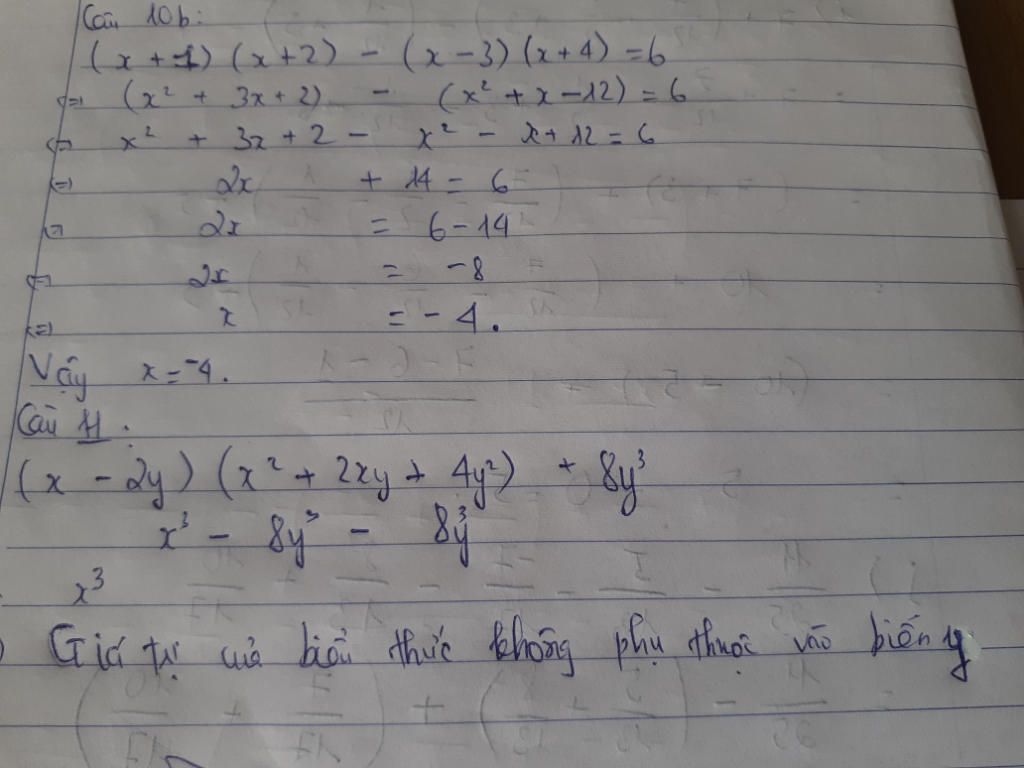 Câu 10b:
(x + 1) (x + 2) - (x - 3) (x + 4) = 6
⇔ (x² + 3x + 2) - (x² + x - 12) = 6
⇔ x² + 3x + 2 - x² - x + 12 = 6
⇔ 2x + 14 = 6
⇔ 2x = 6 - 14
⇔ 2x = -8
⇔ x = -4.
Vậy x = -4.
Câu 11:
(x - 2y) (x² + 2xy + 4y²) + 8y³
x³ - 8y³ - 8y³
x³
Giá trị của biểu thức không phụ thuộc vào biến y